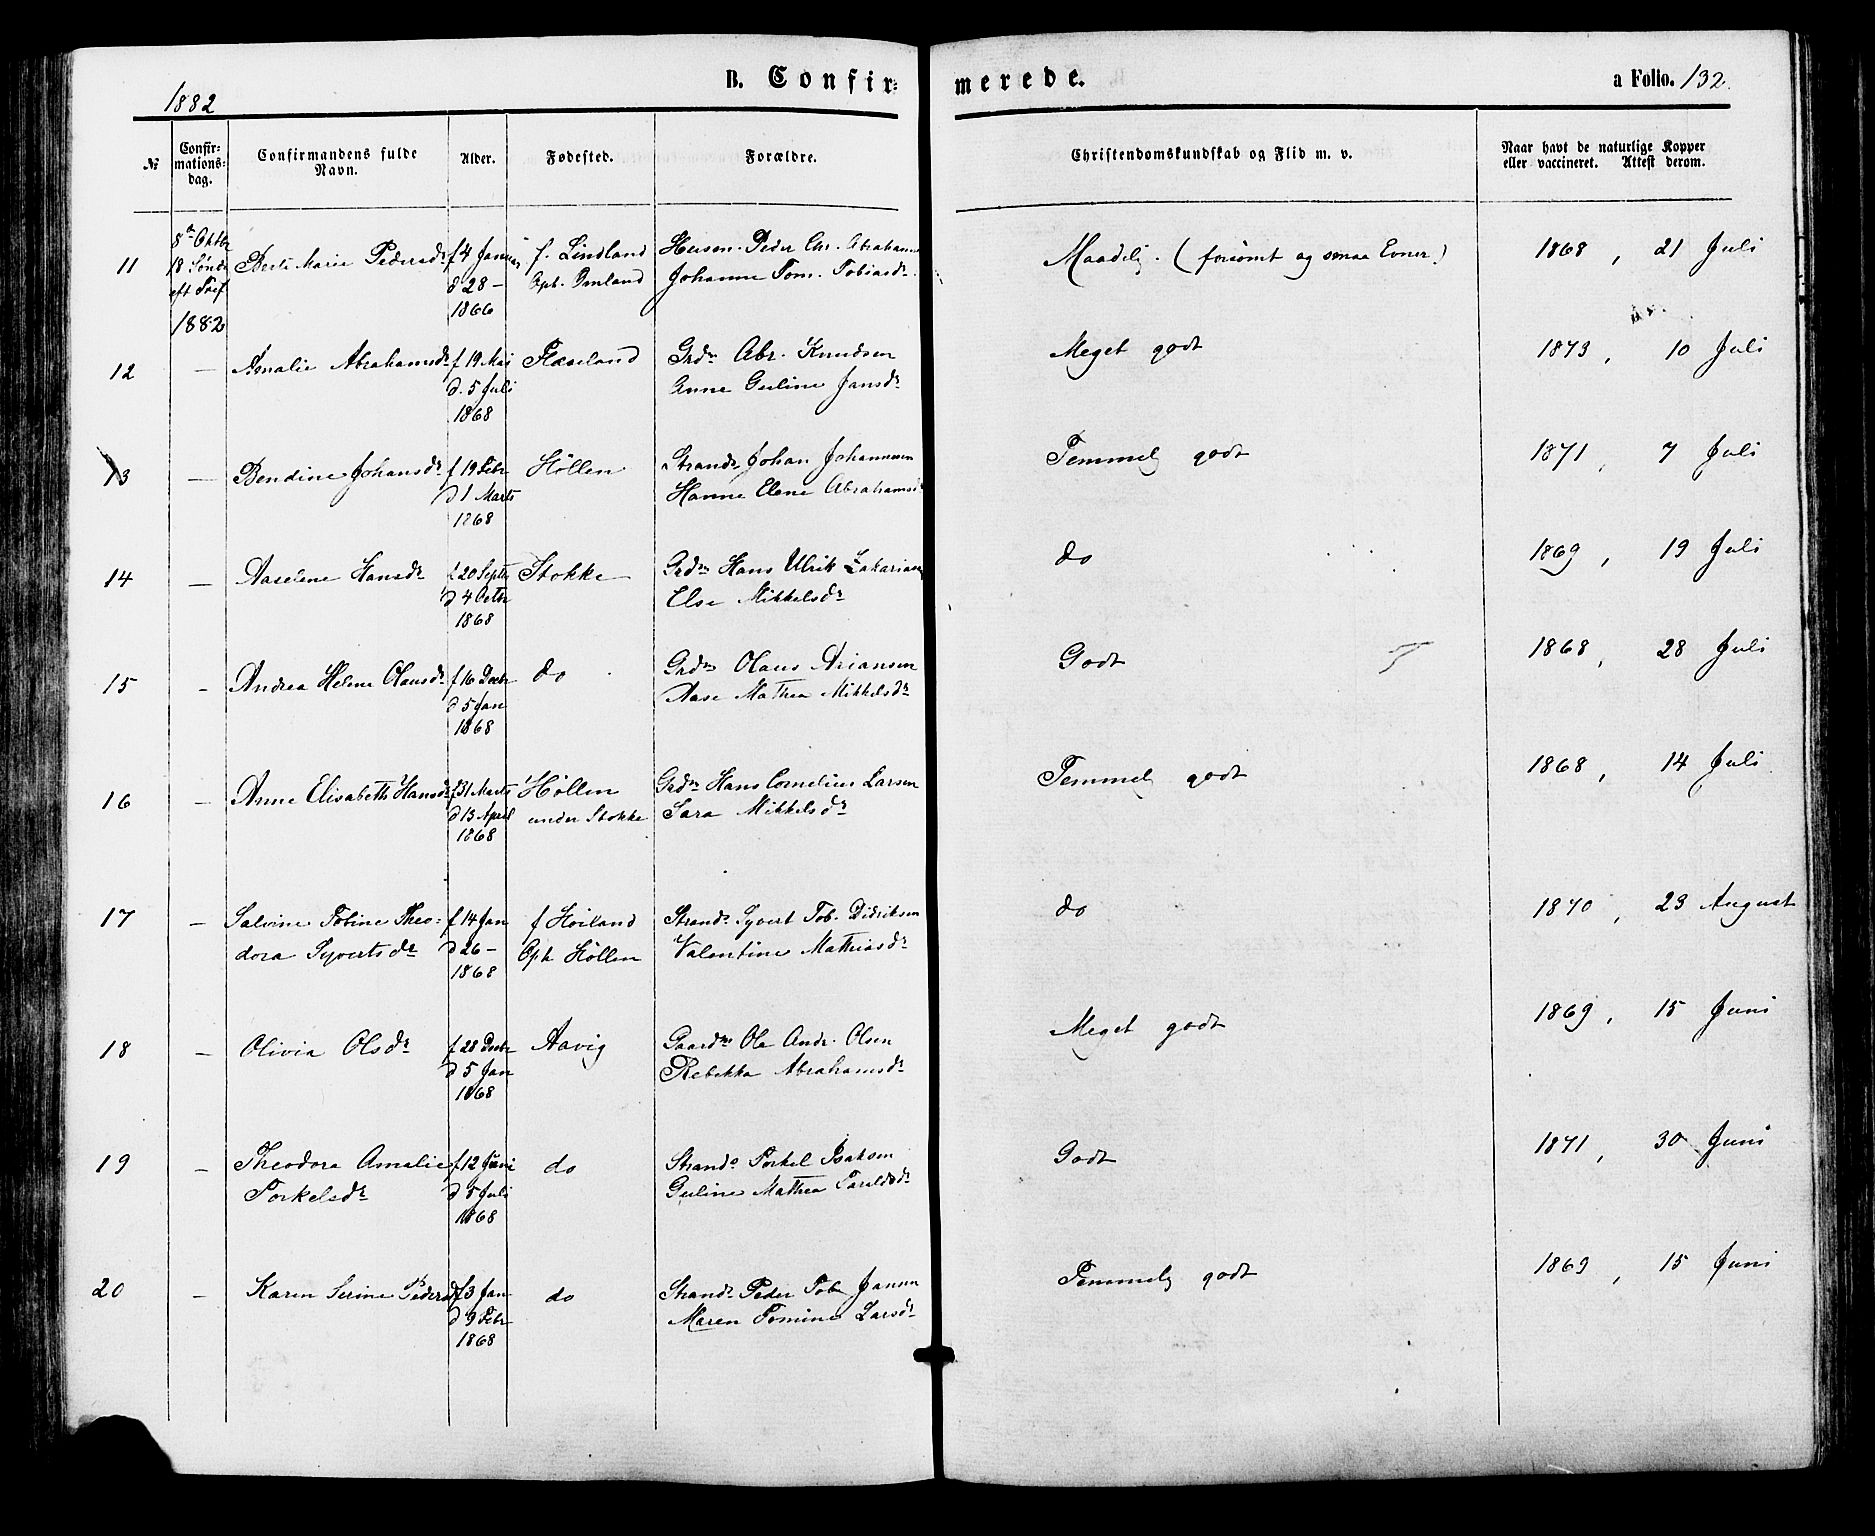 1882
B. Confir-
merede.
a Folio. 132.
№
Confir-
mations-
dag.
Confirmandens fulde
Navn.
Alder.
Fødested.
Forældre.
Christendomskundskab og Flid m. v.
Naar havt de naturlige Kopper
eller vaccineret. Attest derom.
11
8de Oktbr
18 Sønd
eft Tref
1882
Berte Marie Pedersdr
f 4 Januar
d 28 –
1866
f. Lindland
Oph. Omland
Husm. Peder Chr. Abrahams
Johanne Tom. Tobiasdr.
Maadelig. (forsømt og smaa Evner)
1868, 21 Juli
12
—
Amalie Abrahamsdr
f 19 Mai
d. 5 Juli
1868
Fladseland
Grdm Abr. Knudsen
Anne Guline Jansdr
Meget godt
1873, 10 Juli
13
—
Bendine Johansdr
f 19 Febr
d 1 Marts
1868
Høllen
Strands Johan Johannesen
Hanne Elene Abrahamsd
Temmelig godt
1871, 7 Juli
14
—
Aaselene Hansdr
f 20 Septb
d 4 Octbr
1868
Stokke
Grdm Hans Ulrik Zakariasen
Else Mikkelsdr
do
1869, 19 Juli
15
–
Andrea Helene Olausdr
f 16 Decbr
d 5 Jan
1868
do
Grdm Olaus Ariansen
Aase Mathea Mikkelsdr
Godt
1868, 28 Juli
16
—
Anne Elisabeth Hansdr
f 31 Marts
d 13 April
1868
Høllen
under Stokke
Grdm Hans Cornelius Larsen
Sara Mikkelsdr
Temmelig godt
1868, 14 Juli
17
—
Salvine Tobine Theo-
dora Syvertsdr
f 14 Jan
d 26 –
1868
f Høiland
Oph Høllen
Strands Syvert Tob. Didriksen
Valentine Mathiasdr
do
1870, 23 August
18
—
Olivia Olsdr
f 28 Decbr
d 5 Jan
1868
Aavig
Gaardm Ole Andr. Olsen
Rebekka Abrahamsdr
Meget godt
1869, 15 Juni
19
—
Theodora Amalie
Torkelsdr
f 12 Juni
d 5 Juli
1868
do
Strands Torkel Isaksen
Guline Mathea Tarildsdr
Godt
1871, 30 Juni
20
—
Karen Serine Pedersdr
f 3 Jan
d 9 Febr
1868
do
Strands Peder Tob Jansen
Maren Tomine Larsdr
Temmelig godt
1869, 15 Juni